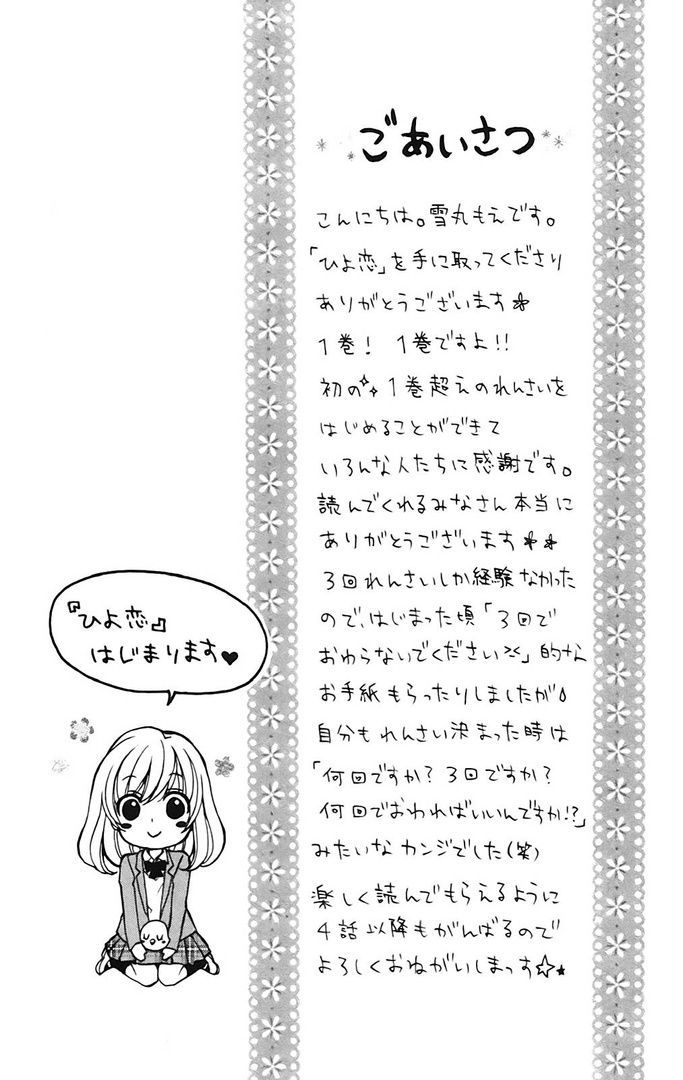 ごあいさつ
こんにちは。雪丸もえです。
「ひよ恋」を手に取ってくださり
ありがとうございます✽
1巻! 1巻ですよ!!
初の 1巻超えのれんさいを
はじめることができて
いろんな人たちに感謝です。
読んでくれるみなさん本当に
ありがとうございます✽✽
3回れんさいしか経験なかった
ので、はじまった頃「3回で
おわらないでください><」的な
お手紙もらったりしましたが
自分もれんさい決まった時は
「何回ですか? 3回ですか?
何回でおわればいいんですか!?」
みたいなカンジでした(笑)
楽しく読んでもらえるように
4話以降もがんばるので
よろしくおねがいしまっす☆★
『ひよ恋』
はじまります♥